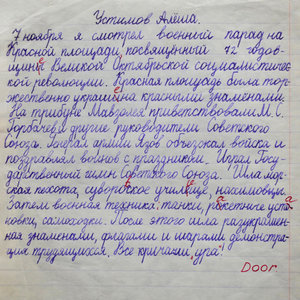 Устимов Алёша.
7 ноября я смотрел военный парад на
Красной площади, посвящённый 72 годов-
щине Великой Октябрьской социалистичес-
кой революции. Красная площадь была тор-
жественно украшена красными знамёнами.
На трибуне Мавзолея приветствовали М. С.
Горбачев и другие руководители Советского
Союза. Генерал армии Язов объезжал войска и
поздравлял воинов с праздником. Играл Госу-
дарственный гимн Советского Союза. Шла мор-
ская пехота, суворовское училище, нахимовцы.
Затем военная техника: танки, ракетные уста-
новки, самоходки. После этого шла разукрашен-
ная знамёнами, флагами и шарами демонстра-
ция трудящихся. Все кричали „ура"!
Door